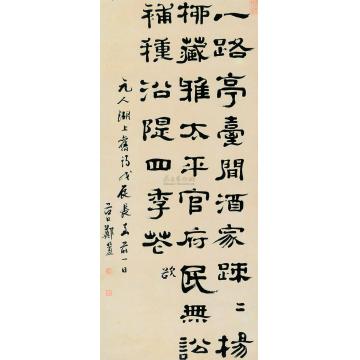 一路亭臺間酒家踈〻楊
柳藏雅太平官府民無訟
補種沿隄四季花 欲
元人湖上舊詩戊辰長至前一日
谷口鄭簠